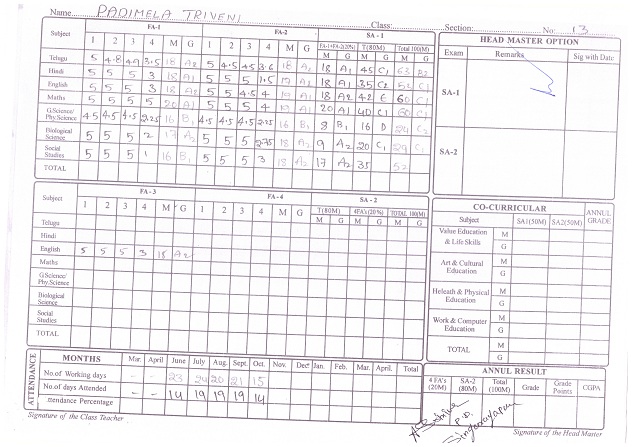 Name PADIMELA TRIVENI Class: Section: No: 13
FA-1 FA-2 SA - 1
Subject 1 2 3 4 M G 1 2 3 4 M G FA-1+FA-2(20%) T(80M) Total 100(M)
M G M G M G
Telugu 5 4.8 4.9 3.5 18 A2 5 4.5 4.5 3.6 18 A1 18 A1 45 C1 63 B2
Hindi 5 5 5 3 18 A1 5 5 5 1.5 19 A1 18 A1 35 C2 52 C1
English 5 5 5 3 18 A2 5 5 4.5 4 19 A1 18 A2 42 E 60 C1
Maths 5 5 5 5 20 A1 5 5 5 4 19 A1 20 A1 40 C1 60 C1
G.Science/ Phy.Science 4.5 4.5 4.5 2.25 16 B1 4.5 4.5 4.5 2.25 16 B1 8 B1 16 D
Biological Science 5 5 5 2 17 A2 5 5 5 2.75 18 A2 9 A2 20 C1 29 C1
Social Studies 5 5 5 1 16 B1 5 5 5 3 18 A2 17 A2 35 52
TOTAL
HEAD MASTER OPTION
Exam Remarks Sig with Date
SA-1
SA-2
FA - 3 FA - 4 SA - 2
Subject 1 2 3 4 M G 1 2 3 4 M G T(80M) 4FA's (20%) TOTAL 100(M)
M G M G M G
Telugu
Hindi
English 5 5 5 3 18 A2
Maths
G.Science/ Phy.Science
Biological Science
Social Studies
TOTAL
CO-CURRICULAR ANNUL GRADE
Subject SA1(50M) SA2(50M)
Value Education & Life Skills M
G
Art & Cultural Education M
G
Heleath & Physical Education M
G
Work & Computer Education M
G
TOTAL M
G
ATTENDANCE
MONTHS Mar. April June July Aug. Sept. Oct. Nov. Dect Jan. Feb. Mar. April. Total
No.of Working days - - 23 24 20 21 15
No.of days Attended - - 14 19 19 19 14
Attendance Percentage
ANNUL RESULT
4 FA's (20M) SA-2 (80M) Total (100M) Grade Grade Points CGPA
P.D.
Signature of the Class Teacher
Signature of the Head Master